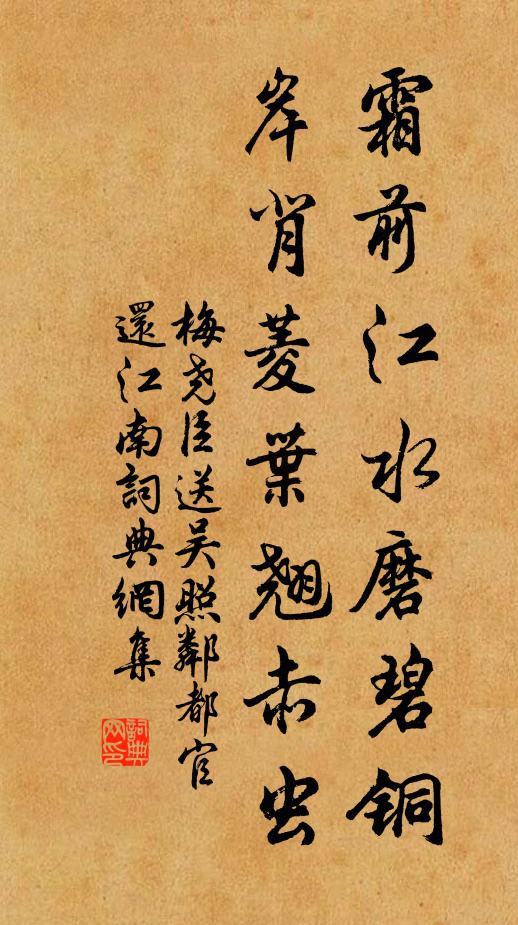 霜前江水磨碧铜
岸背菱葉翘赤虫
梅尧臣送吴照鄰都官
還江南詞典網集
詞典网印